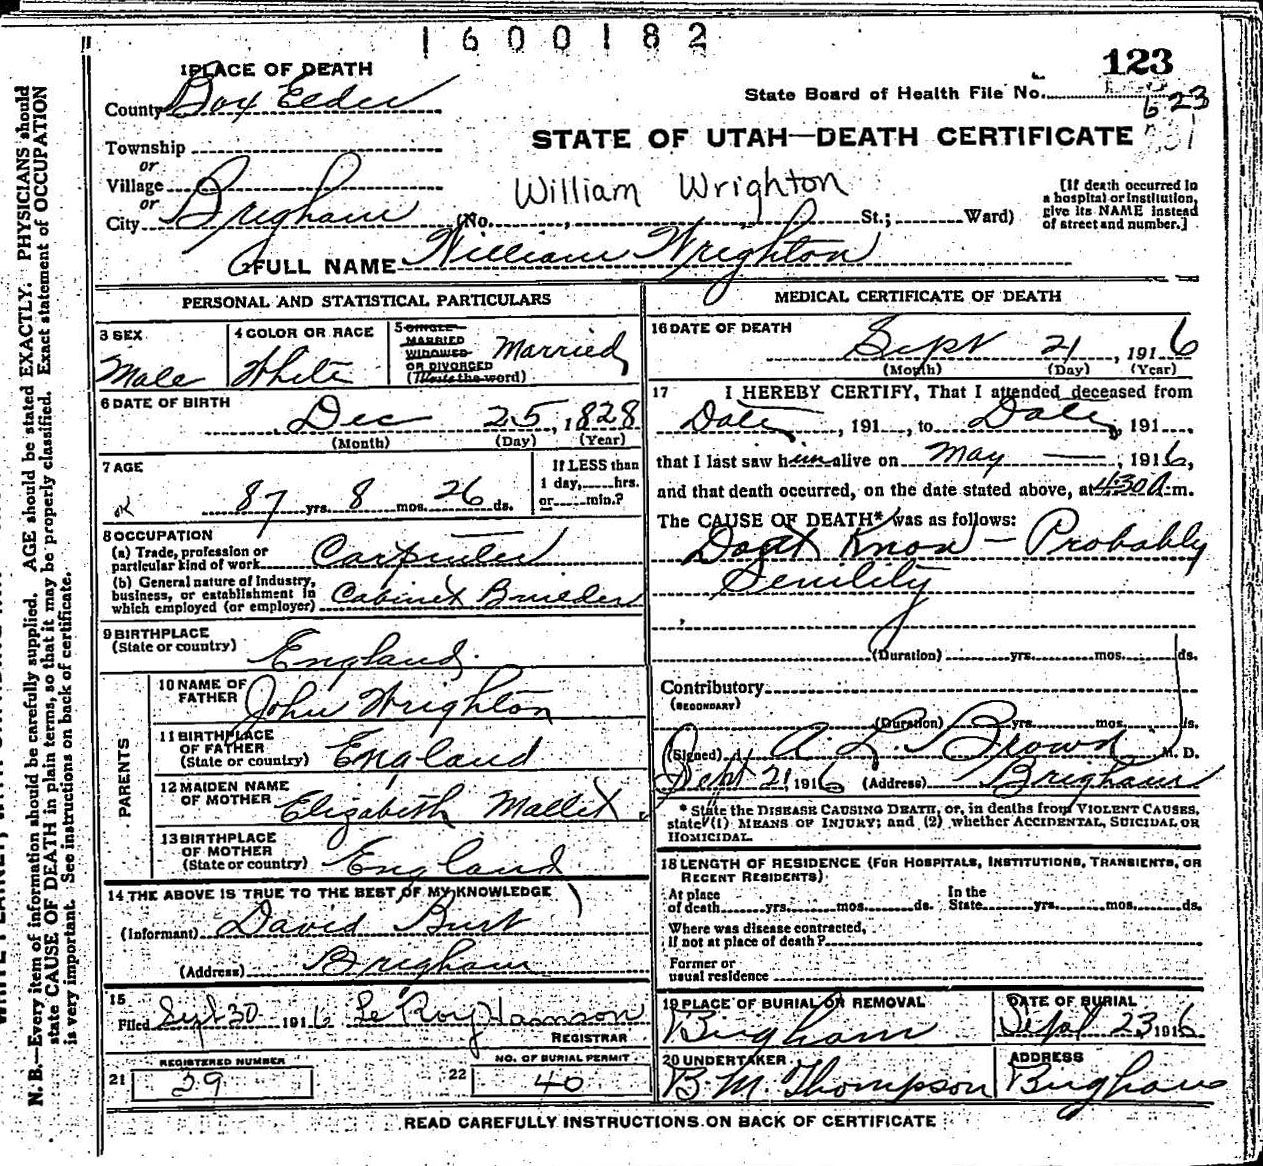 1600182
123
1 PLACE OF DEATH
County Box Elder
State Board of Health File No.
623
STATE OF UTAH—DEATH CERTIFICATE
Township
or
Village
or
City Brigham
William Wrighton
(No. , St.; Ward)
[If death occurred in
a hospital or institution,
give its NAME instead
of street and number.]
2 FULL NAME William Wrighton
PERSONAL AND STATISTICAL PARTICULARS
3 SEX
Male
4 COLOR OR RACE
White
5 SINGLE
MARRIED
WIDOWED
OR DIVORCED
(Write the word)
Married
6 DATE OF BIRTH
Dec 25, 1828
(Month) (Day) (Year)
7 AGE
87 yrs. 8 mos. 26 ds.
If LESS than
1 day, hrs.
or min.?
8 OCCUPATION
(a) Trade, profession or
particular kind of work Carpenter
(b) General nature of Industry,
business, or establishment in
which employed (or employer) Cabinet Builder
9 BIRTHPLACE
(State or country) England
PARENTS
10 NAME OF
FATHER John Wrighton
11 BIRTHPLACE
OF FATHER
(State or country) England
12 MAIDEN NAME
OF MOTHER Elizabeth Mallet
13 BIRTHPLACE
OF MOTHER
(State or country) England
14 THE ABOVE IS TRUE TO THE BEST OF MY KNOWLEDGE
(Informant) David Burt
(Address) Brigham
15
Filed Sept 30 1916 Le Roy
REGISTRAR
REGISTERED NUMBER
21 29
NO. OF BURIAL PERMIT
22 40
MEDICAL CERTIFICATE OF DEATH
16 DATE OF DEATH
Sept 21, 1916
(Month) (Day) (Year)
17 I HEREBY CERTIFY, That I attended deceased from
, 191 , to , 191
that I last saw him alive on May — , 1916,
and that death occurred, on the date stated above, at 4:30 A. m.
The CAUSE OF DEATH* was as follows:
Dont Know — Probably
Senility
(Duration) yrs. mos. ds.
Contributory
(SECONDARY)
(Duration) yrs. mos. ds.
(Signed) A. L. Brown M. D.
Sept 21, 1916 (Address) Brigham
* State the DISEASE CAUSING DEATH, or, in deaths from VIOLENT CAUSES,
state (1) MEANS OF INJURY; and (2) whether ACCIDENTAL, SUICIDAL OR
HOMICIDAL.
18 LENGTH OF RESIDENCE (FOR HOSPITALS, INSTITUTIONS, TRANSIENTS, OR
RECENT RESIDENTS)
At place
of death yrs. mos. ds.
In the
State yrs. mos. ds.
Where was disease contracted,
if not at place of death?
Former or
usual residence
19 PLACE OF BURIAL OR REMOVAL
Brigham
DATE OF BURIAL
Sept 23 1916
20 UNDERTAKER
B. M. Thompson
ADDRESS
Brigham
READ CAREFULLY INSTRUCTIONS ON BACK OF CERTIFICATE
N. B.—Every item of information should be carefully supplied. AGE should be stated EXACTLY. PHYSICIANS should
state CAUSE OF DEATH in plain terms, so that it may be properly classified. Exact statement of OCCUPATION
is very important. See instructions on back of certificate.